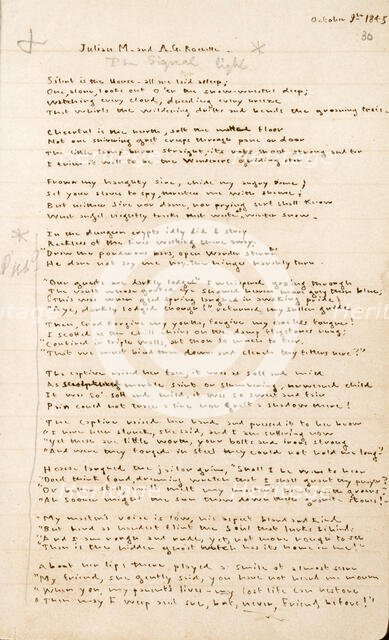 October 9th 1845
30
Julian M. and A.G. Rochelle
The Signal light
Silent is the House - all are laid asleep;
One, alone, looks out o'er the snow-wreaths deep;
Watching every cloud, dreading every breeze
That whirls the wildering drifts and bends the groaning trees -
Cheerful is the hearth, soft the matted floor
Not one shivering gust creeps through pane or door
The little lamp burns straight, its rays shoot strong and far
I trim it well to be the Wanderer's guiding-star -
Frown, my haughty sire, chide my angry Dame;
Set your slaves to spy, threaten me with shame;
But neither sire nor dame, nor prying serf shall know
What angel nightly tracks that waste of winter snow -
In the dungeon crypts idly did I stray
Reckless of the lives wasting there away;
"Draw the ponderous bars, open Warder stern!"
He dare not say me nay - the hinges harshly turn -
"Our guests are darkly lodged" I whispered gazing through
The vault whose grated eye showed heaven more grey than blue;
(This was when glad spring laughed in awaking pride)
"Aye, darkly lodged enough!" returned my sullen guide -
Then, God forgive my youth, forgive my careless tongue!
I scoffed as the chill chains on the damp flagstones rung;
"Confined in triple walls, art thou so much to fear,
"That we must bind thee down and clench thy fetters here?"
The captive raised her face, it was as soft and mild
As sculptured marble saint or slumbering, unweaned child
It was so soft and mild, it was so sweet and fair
Pain could not trace a line nor grief a shadow there!
The captive raised her hand and pressed it to her brow
"I have been struck, she said, and I am suffering now
"Yet these are little worth, your bolts and irons strong
"And were they forged in steel they could not hold me long"
Hoarse laughed the jailor grim, "Shall I be won to hear
"Dost think fond dreaming wretch that I shall grant thy prayer?
"Or better still, wilt melt my master's heart with groans?
"Ah sooner might the sun thaw down these granite stones! -
"My master's voice is low, his aspect bland and kind
"But hard as hardest flint the soul that lurks behind:
"And I am rough and rude, yet, not more rough to see
"Than is the hidden ghost which has its home in me!"
About her lips there played a smile of almost scorn
"My friend, she gently said, you have not heard me mourn
"When you, my parents' lives - my lost life can restore
"Then may I weep and sue, but, never, Friend, before!"